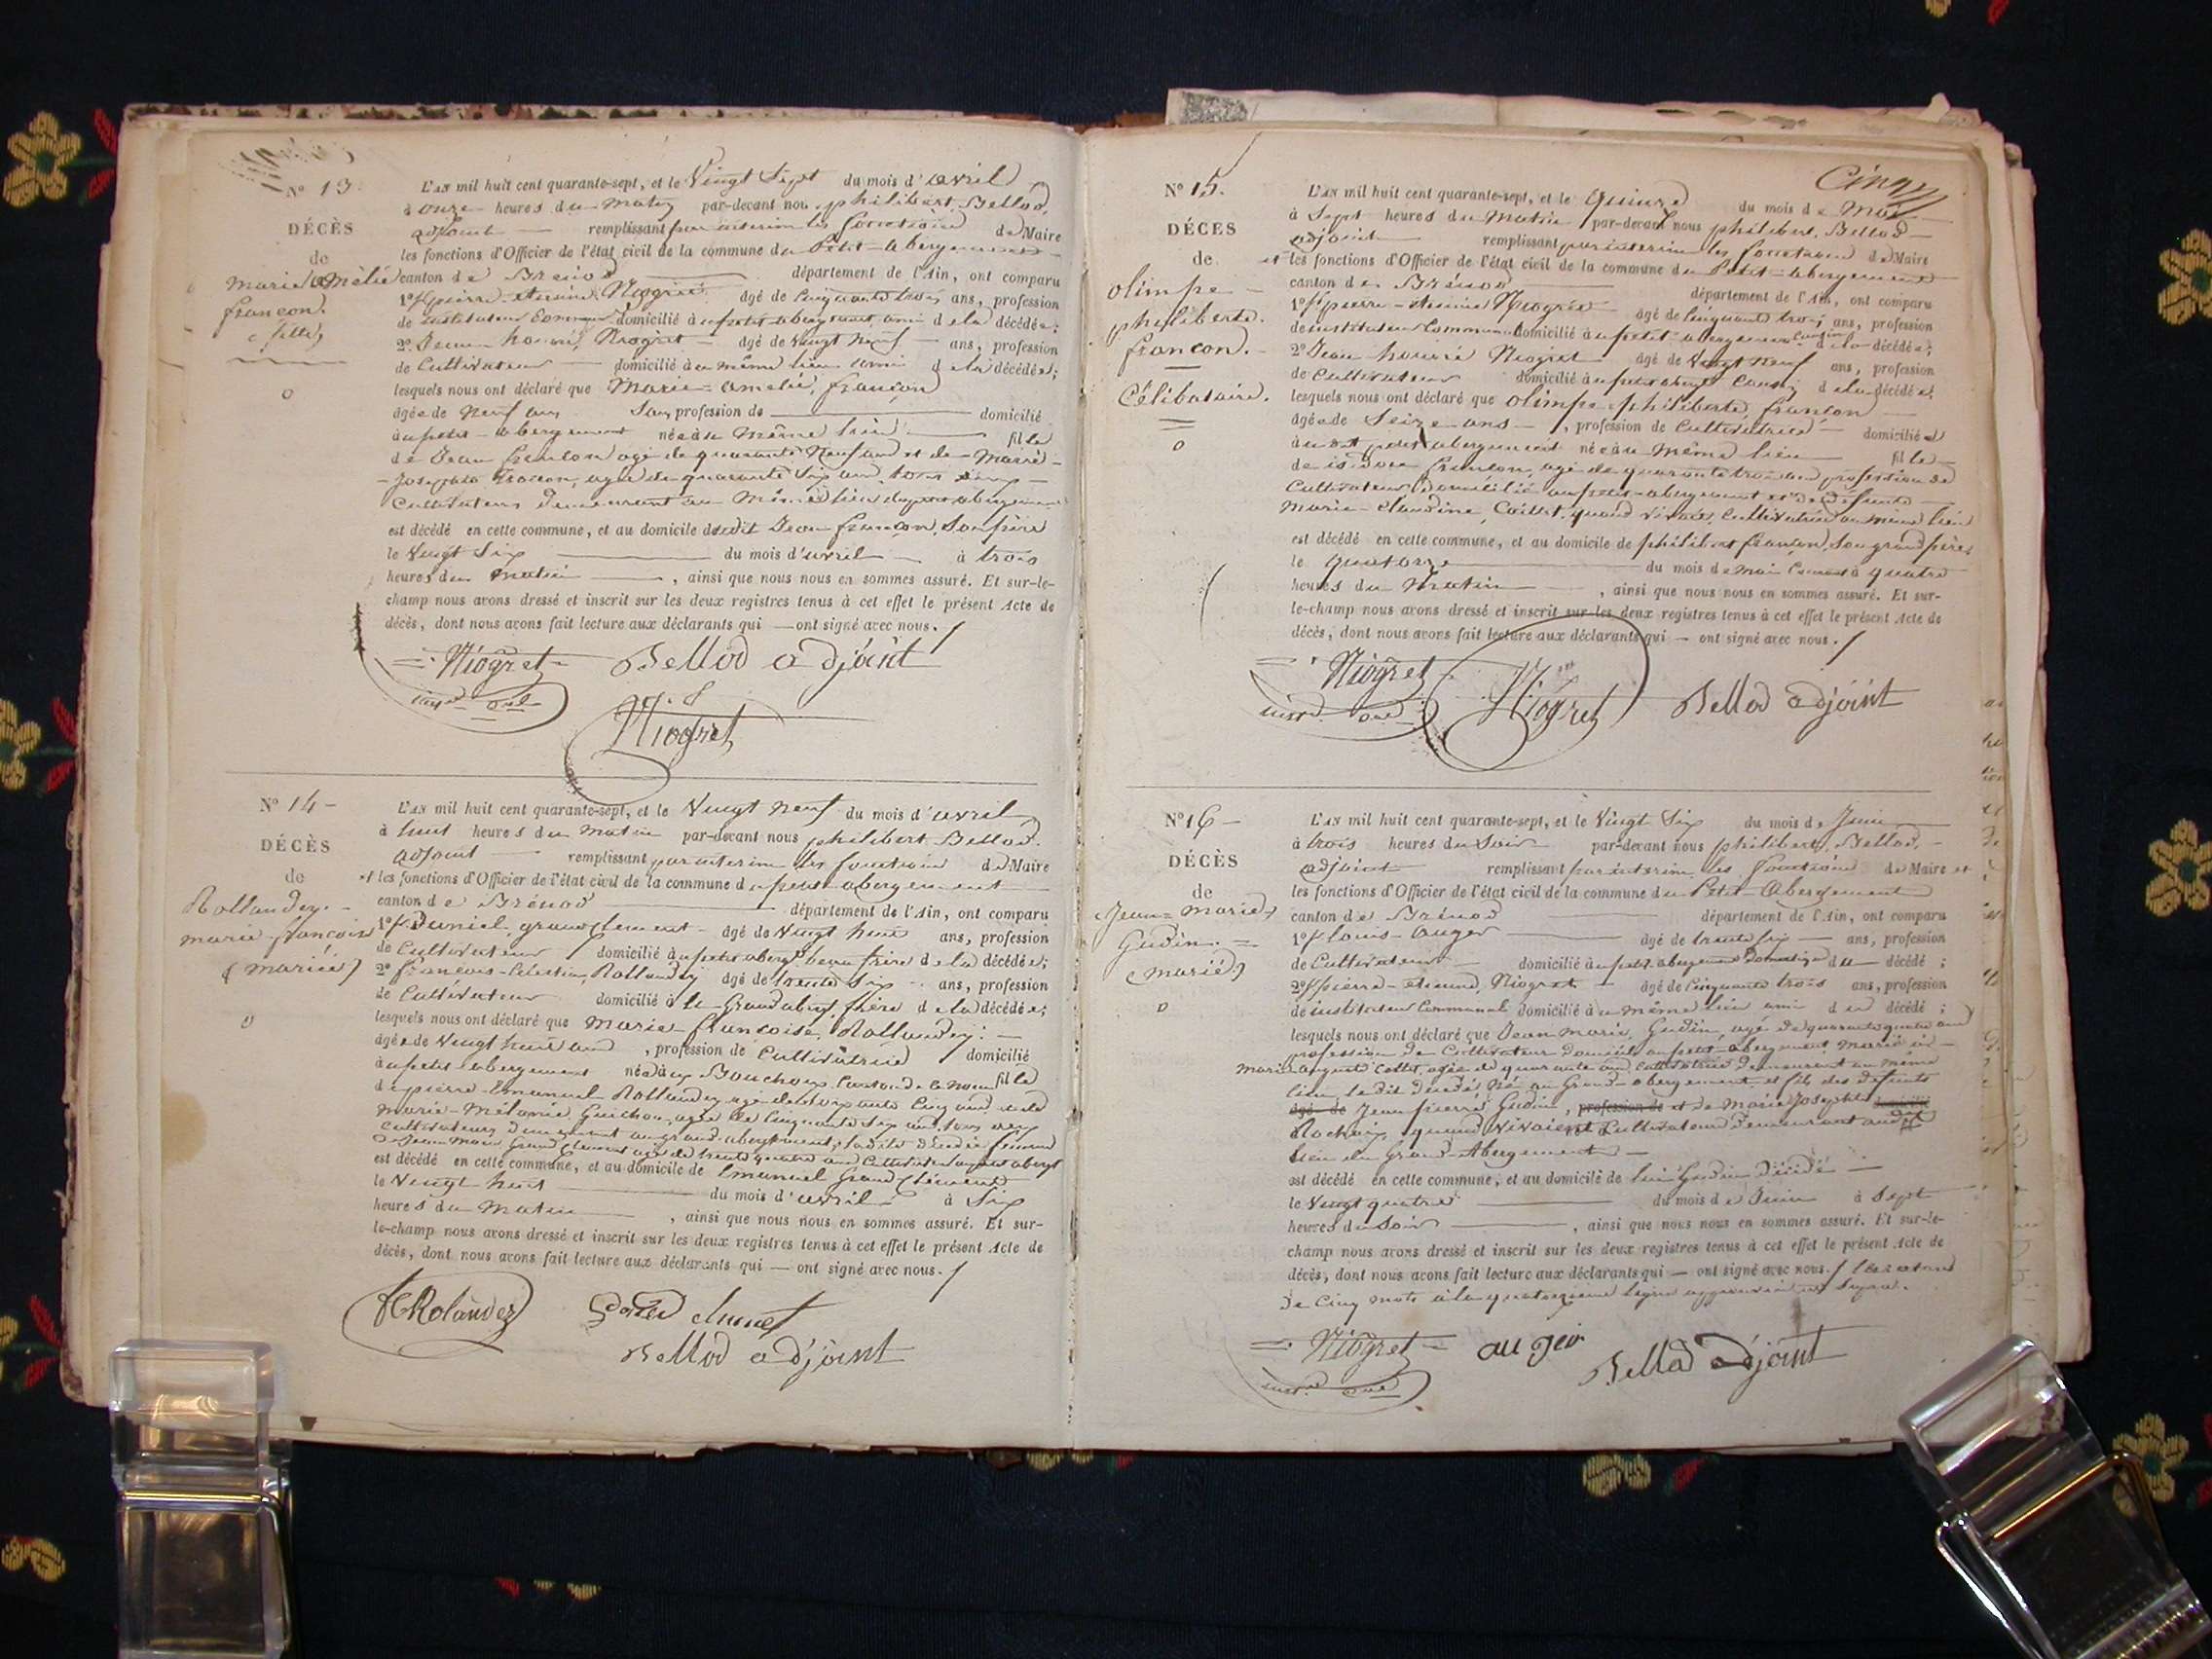 Nº 13.
DÉCÈS
de
Marie Amélie
françon.
fille
L'AN mil huit cent quarante-sept, et le Vingt Sept du mois d'avril
à onze heures du matin par-devant nous philibert Bellod,
adjoint remplissant par interim les fonctions de Maire
les fonctions d'Officier de l'état civil de la commune du Petit-abergement
canton de Brénod département de l'Ain, ont comparu
1º pierre-etienne Niogret âgé de Cinquante trois ans, profession
de instituteur domicilié à au petit-abergement, ami de la décédée;
2º Jean Niogret âgé de vingt neuf ans, profession
de Cultivateur domicilié à au même lieu ami de la décédée;
lesquels nous ont déclaré que Marie-amélie, françon
âgée de neuf ans Sans profession de domicilié
au petit-abergement née à au même lieu fille
de Jean françon agé de quarante neuf ans et de Marie-
agée de quarante Six ans, tous deux
Cultivateurs demeurant au même lieu du petit abergement
est décédé en cette commune, et au domicile dudit Jean françon, Son père
le Vingt Six du mois d'avril à trois
heures du matin, ainsi que nous nous en sommes assuré. Et sur-le-
champ nous avons dressé et inscrit sur les deux registres tenus à cet effet le présent Acte de
décès, dont nous avons fait lecture aux déclarants qui — ont signé avec nous.
Niogret Bellod adjoint
Niogret
Nº 14
DÉCÈS
de
Rollandez.
marie françoise
(mariée)
L'AN mil huit cent quarante-sept, et le Vingt neuf du mois d'avril
à huit heures du matin par-devant nous philibert Bellod.
adjoint remplissant par interim les fonctions de Maire
et les fonctions d'Officier de l'état civil de la commune du petit abergement
canton de Brénod département de l'Ain, ont comparu
1º grandclement âgé de Vingt huit ans, profession
de Cultivateur domicilié à au petit aberget beau frère de la décédée;
2º françois-Célestin, Rollandez âgé de trente Six ans, profession
de Cultivateur domicilié à le Grand aberget, frère de la décédée;
lesquels nous ont déclaré que Marie-françoise, Rollandez.
âgée de Vingt huit ans, profession de Cultivatrice domicilié
au petit abergement née à aux Bouchoux fille
de pierre-Emanuel Rollandez agé de Cinq ans, et de
Marie-Mélanie, Guichon, agée de Cinquante Six ans, tous deux
Cultivateurs demeurant au grand-abergement, ladite décédée femme
de Jean Marie Grand Clement agé de trente quatre ans Cultivateur au petit abergt
est décédé en cette commune, et au domicile de Emanuel Grand Clément
le Vingt huit du mois d'avril à Six
heures du Matin, ainsi que nous nous en sommes assuré. Et sur-
le-champ nous avons dressé et inscrit sur les deux registres tenus à cet effet le présent Acte de
décès, dont nous avons fait lecture aux déclarants qui — ont signé avec nous.
Rolandez
Bellod adjoint
Cinq
Nº 15.
DÉCÈS
de
olimpe
philiberte.
françon.
Célibataire.
L'AN mil huit cent quarante-sept, et le quinze du mois de Mai
à Sept heures du Matin par-devant nous philibert. Bellod
adjoint remplissant par interim les fonctions de Maire
et les fonctions d'Officier de l'état civil de la commune du Petit-abergement
canton de Brénod département de l'Ain, ont comparu
1º pierre-etienne Niogret âgé de Cinquante trois ans, profession
de instituteur Communal domicilié à au petit-abergement Cousin de la décédée;
2º Jean Niogret âgé de Vingt neuf ans, profession
de Cultivateur domicilié à au petit aberget Cousin de la décédée;
lesquels nous ont déclaré que olimpe philiberte, françon
âgée de Seize ans, profession de Cultivatrice domiciliée
au dit petit abergement née à au même lieu fille
de isidore françon, agé de quarante trois ans profession de
Cultivateur, domicilié au petit-abergement et de défunte
Marie-Claudine, Collet, quand vivait, Cultivatrice au même lieu
est décédé en cette commune, et au domicile de philibert françon, Son grand père
le quatorze du mois de Mai Courant à quatre
heures du Matin, ainsi que nous nous en sommes assuré. Et sur-
le-champ nous avons dressé et inscrit sur les deux registres tenus à cet effet le présent Acte de
décès, dont nous avons fait lecture aux déclarants qui — ont signé avec nous.
Niogret Niogret Bellod adjoint
Nº 16
DÉCÈS
de
Jean-marie
Gudin.
(marié)
L'AN mil huit cent quarante-sept, et le Vingt Six du mois de Juin
à trois heures du Soir par-devant nous philibert, Bellod,
adjoint remplissant par interim les fonctions de Maire et
les fonctions d'Officier de l'état civil de la commune du Petit Abergement
canton de Brénod département de l'Ain, ont comparu
1º louis-auger âgé de trente Six ans, profession
de Cultivateur domicilié à au petit-abergement du décédé;
2º pierre-etienne, Niogret âgé de Cinquante trois ans, profession
de instituteur Communal domicilié à au même lieu ami du décédé;
lesquels nous ont déclaré que Jean marie, Gudin, agé de quarante quatre ans
profession de Cultivateur domicilié au petit-abergement, Marié à
Collet, agée de quarante ans, Cultivatrice demeurant au même
lieu ledit décédé, Né au Grand-abergement et fils des défunts
âgé de Jean pierre Gudin, profession de et de Marie Josephte domicilié
Rochaix quand Vivaient Cultivateurs demeurant audit
lieu du Grand-Abergement
est décédé en cette commune, et au domicile de lui Gudin décédé
le Vingt quatre du mois de Juin à Sept
heures du Soir, ainsi que nous nous en sommes assuré. Et sur-le-
champ nous avons dressé et inscrit sur les deux registres tenus à cet effet le présent Acte de
décès, dont nous avons fait lecture aux déclarants qui — ont signé avec nous.
de Cinq mots à la quatorzième ligne
Niogret auger Bellod adjoint